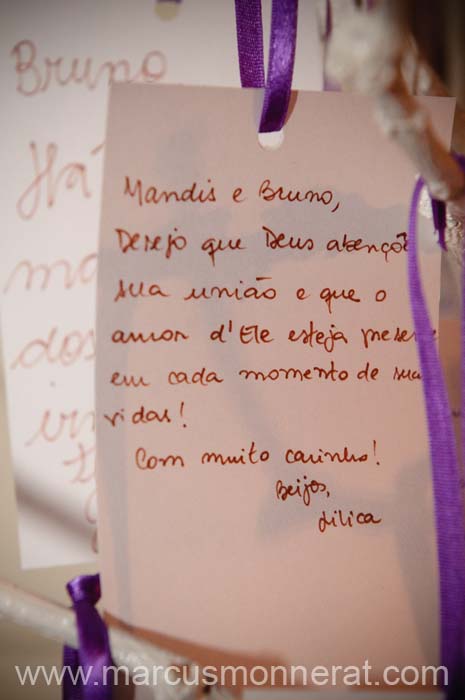 Bruno
Há
ma
dos
Mandis e Bruno,
Desejo que Deus abençõe
sua união e que o
amor d'Ele esteja prese
em cada momento de sua
vidas!
Com muito carinho!
Beijos,
Lilica
www.marcusmonnerat.com